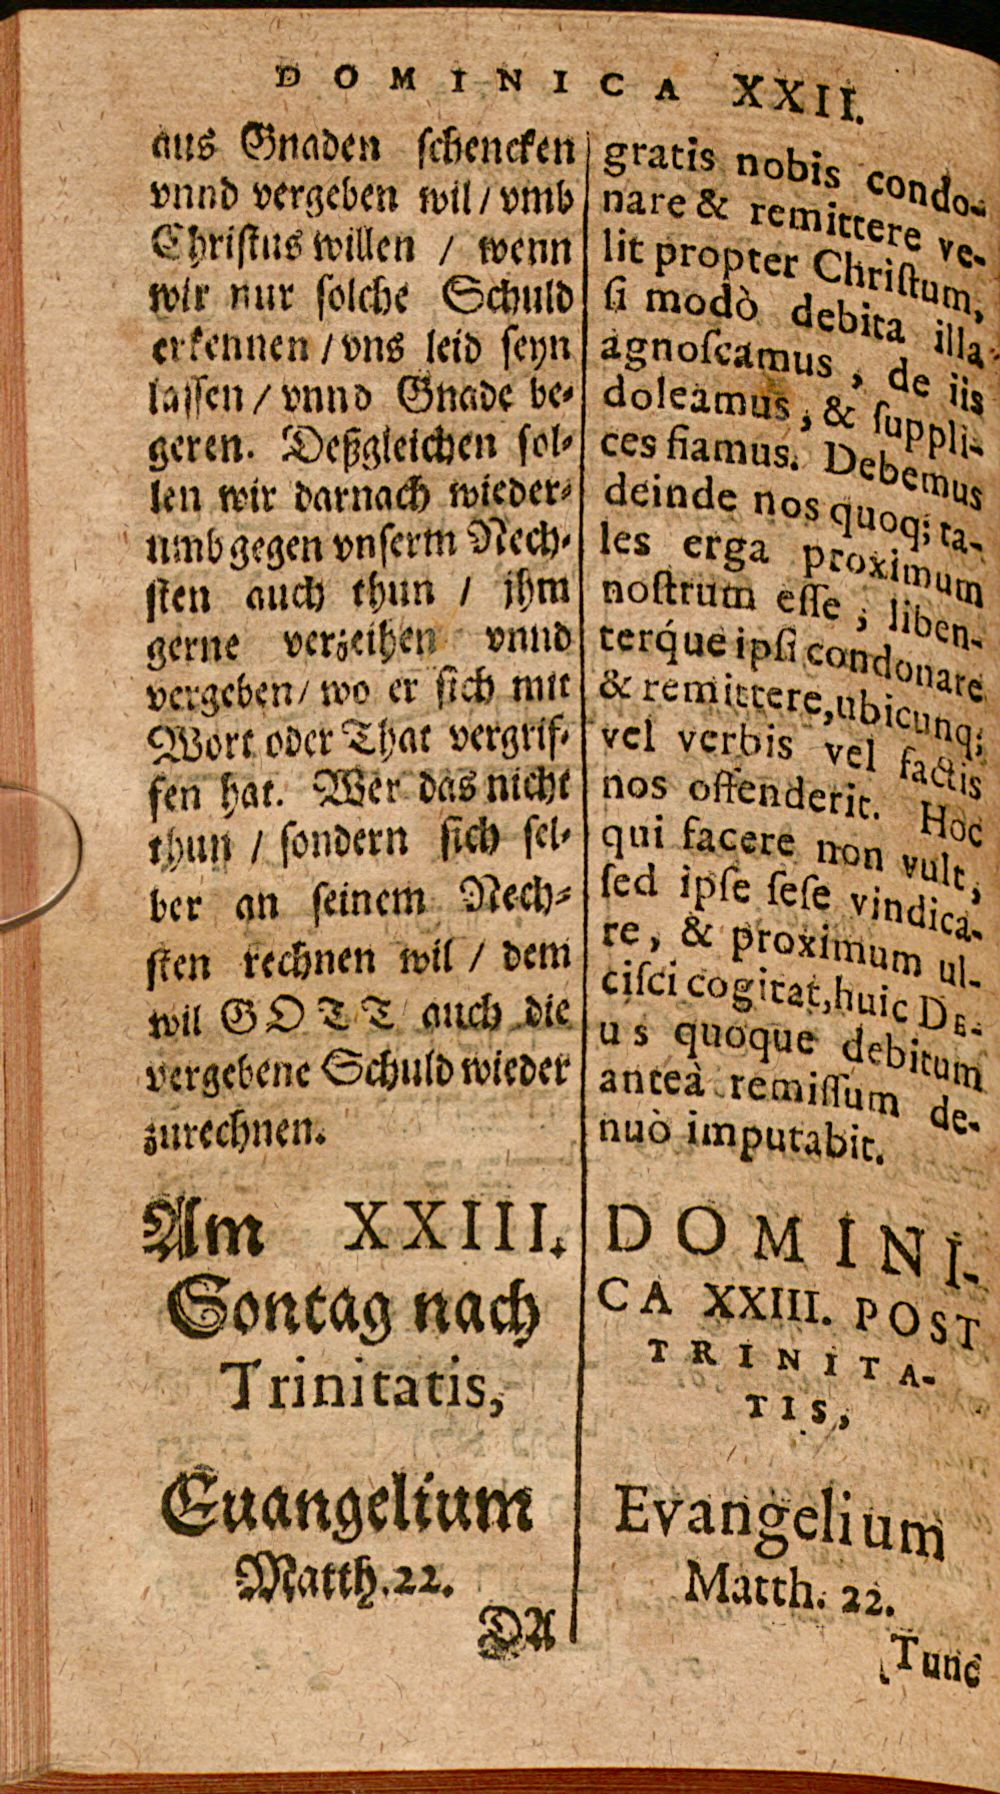 DOMINICA XXII.
aus Gnaden schencken
vnnd vergeben wil / vmb
Christus willen / wenn
wir nur solche Schuld
erkennen / vns leid seyn
lassen / vnnd Gnade be-
geren. Deßgleichen sol-
len wir darnach wieder-
umb gegen vnserm Nech-
sten auch thun / jhm
gerne verzeihen vnnd
vergeben / wo er sich mit
Wort oder That vergrif-
fen hat. Wer das nicht
thun / sondern sich sel-
ber an seinem Nech-
sten rechnen wil / dem
wil GOTT auch die
vergebene Schuld wieder
zurechnen.
Am XXIII.
Sontag nach
Trinitatis,
Euangelium
Matth. 22.
DA
gratis nobis condo-
nare & remittere ve-
lit propter Chriſtum,
ſi modò debita illa
agnoſcamus, de iis
doleamus, & ſuppli-
ces fiamus. Debemus
deinde nos quoq; ta-
les erga proximum
noſtrum eſſe, liben-
terq́ue ipſi condonare
& remittere, ubicunq;
vel verbis vel factis
nos offenderit. Hoc
qui facere non vult,
ſed ipſe ſeſe vindica-
re, & proximum ul-
ciſci cogitat, huic DE-
US quoque debitum
anteà remiſſum de-
nuò imputabit.
DOMINI-
CA XXIII. POST
TRINITA-
TIS,
Evangelium
Matth. 22.
Tunc